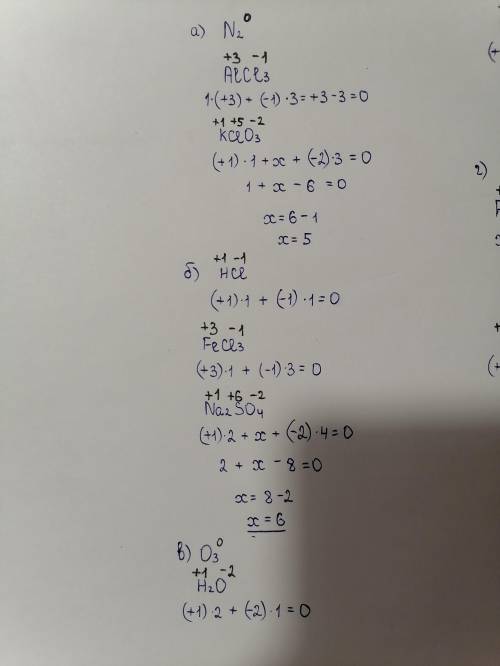 а) N₂⁰
+3 -1
AlCl₃
1·(+3) + (-1)·3 = +3-3=0
+1 +5 -2
KClO₃
(+1)·1 + x + (-2)·3 = 0
1 + x - 6 = 0
x = 6 - 1
x = 5
б) +1 -1
HCl
(+1)·1 + (-1)·1 = 0
+3 -1
FeCl₃
(+3)·1 + (-1)·3 = 0
+1 +6 -2
Na₂SO₄
(+1)·2 + x + (-2)·4 = 0
2 + x - 8 = 0
x = 8 - 2
x = 6
в) O₃⁰
+1 -2
H₂O
(+1)·2 + (-2)·1 = 0
(+
г)
+
(+